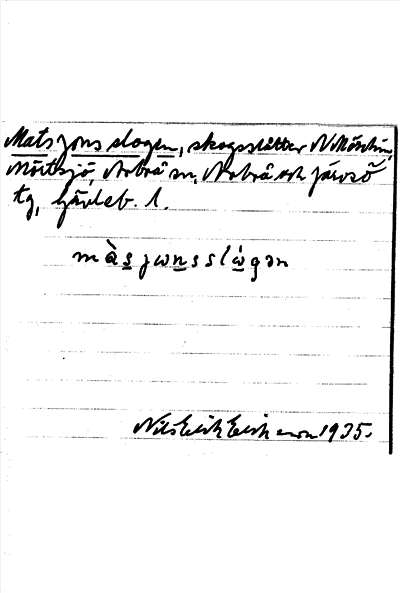 Mats jons slogen, skogsslåtter N.
Mörtsjö, Arbrå sn, Arbrå och Järvsö
tg, Gävleb. l.
màs jωnsslὼgən
Nils Erik Eriksson 1935.